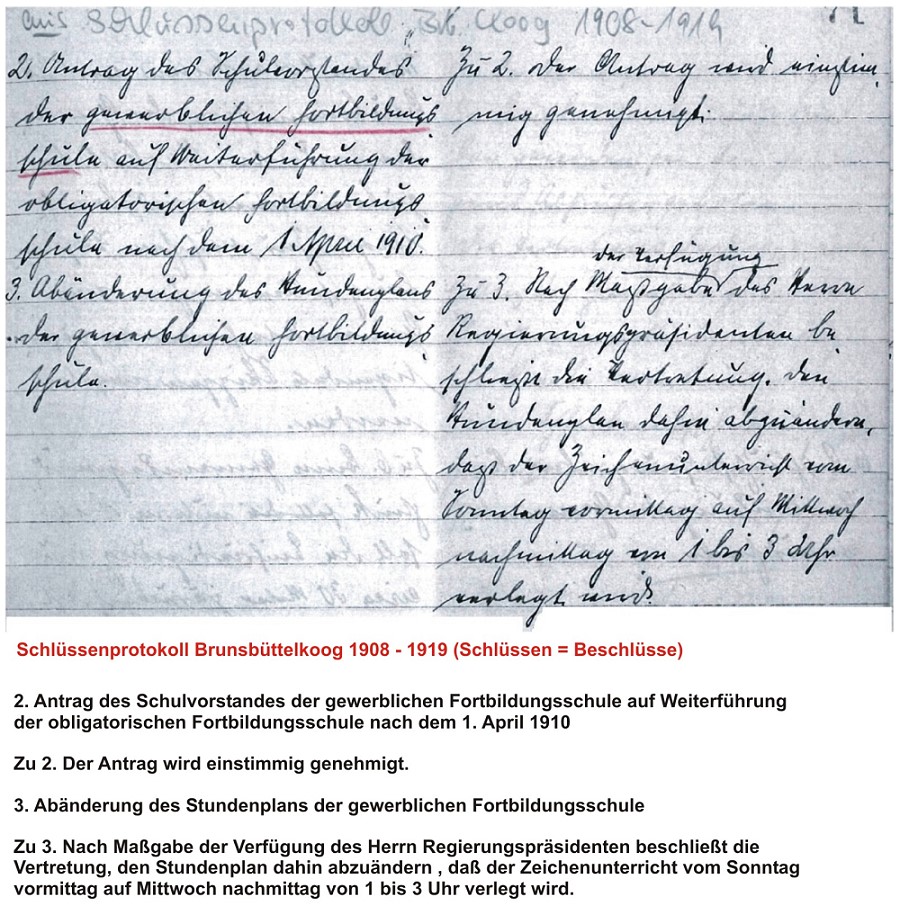 aus Schlüssenprotokoll Bk. Koog 1908-1919
2. Antrag des Schulvorstandes
der gewerblichen Fortbildungs
schule auf Weiterführung der
obligatorischen Fortbildungs
schule nach dem 1. April 1910.
3. Abänderung des Stundenplans
der gewerblichen Fortbildungs
schule.
Zu 2. Der Antrag wird einstim
mig genehmigt.
der Verfügung
Zu 3. Nach Maßgabe des Herrn
Regierungspräsidenten be
schließt die Vertretung, den
Stundenplan dahin abzuändern,
daß der Zeichenunterricht vom
Sonntag vormittag auf Mittwoch
nachmittag von 1 bis 3 Uhr
verlegt wird.
Schlüssenprotokoll Brunsbüttelkoog 1908 - 1919 (Schlüssen = Beschlüsse)
2. Antrag des Schulvorstandes der gewerblichen Fortbildungsschule auf Weiterführung
der obligatorischen Fortbildungsschule nach dem 1. April 1910
Zu 2. Der Antrag wird einstimmig genehmigt.
3. Abänderung des Stundenplans der gewerblichen Fortbildungsschule
Zu 3. Nach Maßgabe der Verfügung des Herrn Regierungspräsidenten beschließt die
Vertretung, den Stundenplan dahin abzuändern , daß der Zeichenunterricht vom Sonntag
vormittag auf Mittwoch nachmittag von 1 bis 3 Uhr verlegt wird.